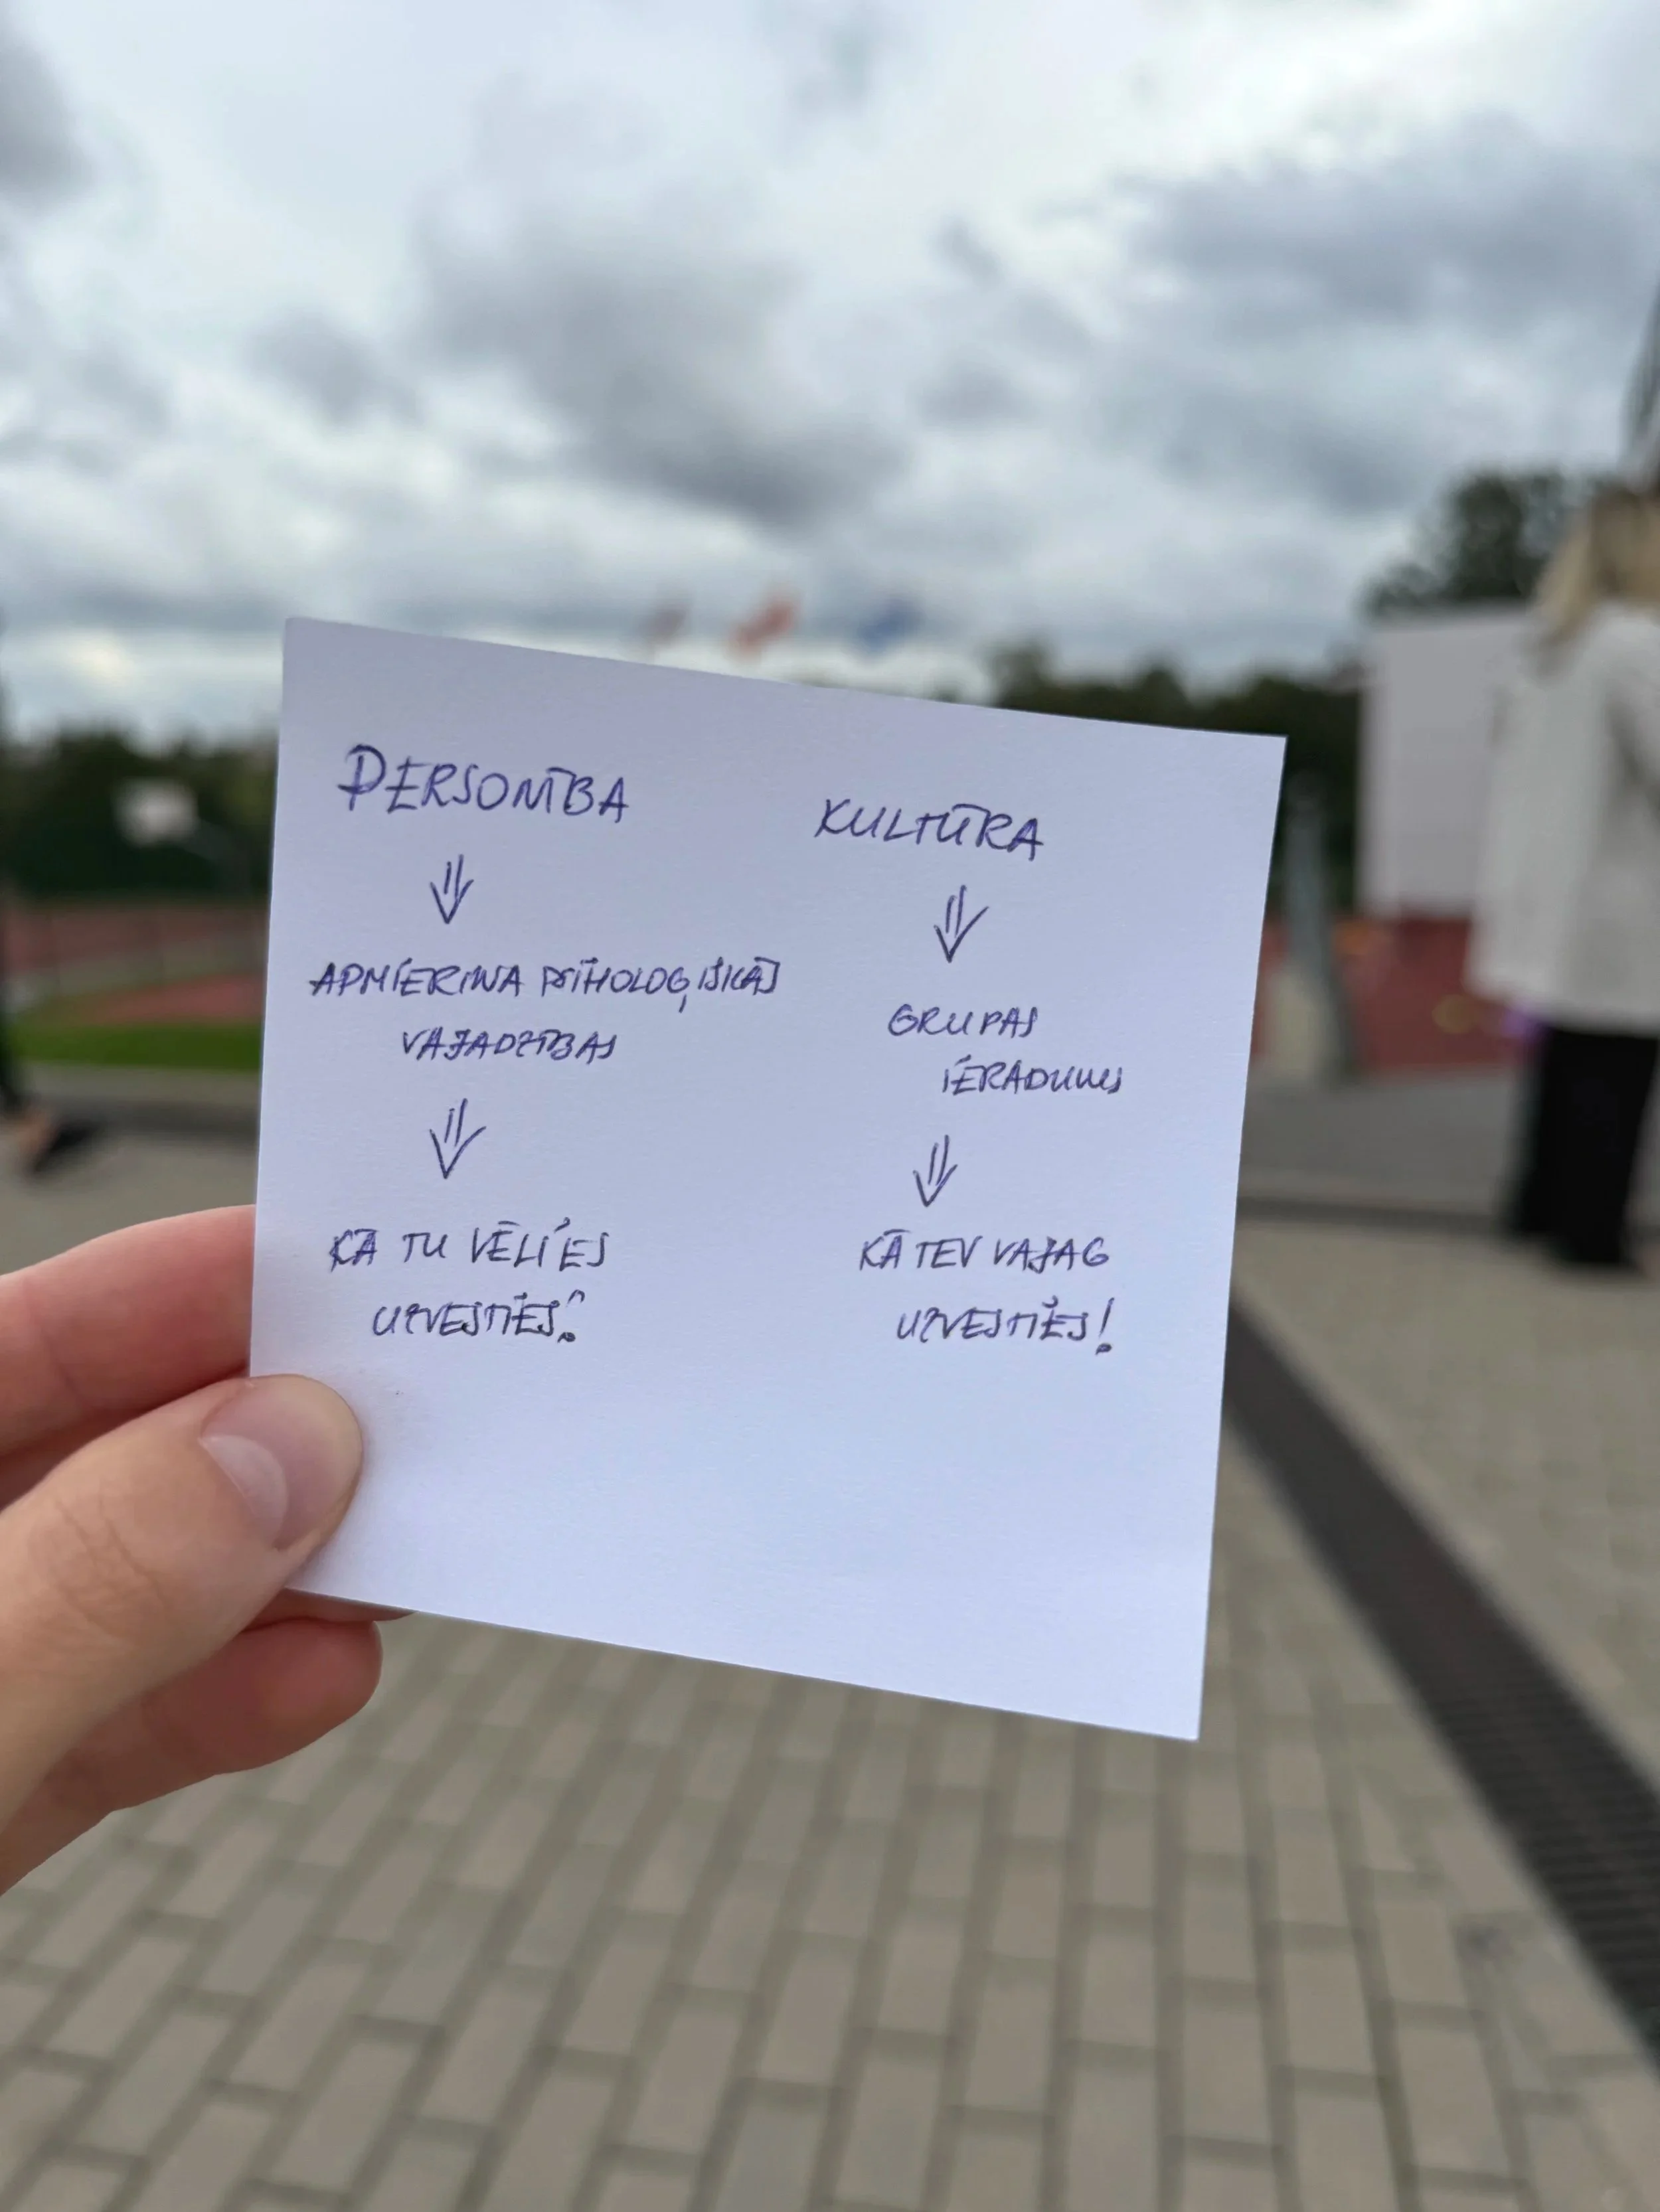 PERSONĪBA
⇓
APMIERINA PSIHOLOĢISKĀS
VAJADZĪBAS
⇓
KĀ TU VĒLIES
UZVESTIES?
KULTŪRA
⇓
GRUPAS
IERADUMS
⇓
KĀ TEV VAJAG
UZVESTIES!